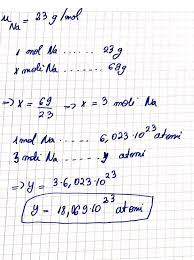 μNa = 23 g/mol
1 mol Na ...... 23g
x moli Na ...... 69g
⇒ x = 69/23 ⇒ x = 3 moli Na
1 mol Na ...... 6,023·10²³ atomi
3 moli Na ...... y atomi
⇒ y = 3·6,023·10²³
y = 18,069·10²³ atomi